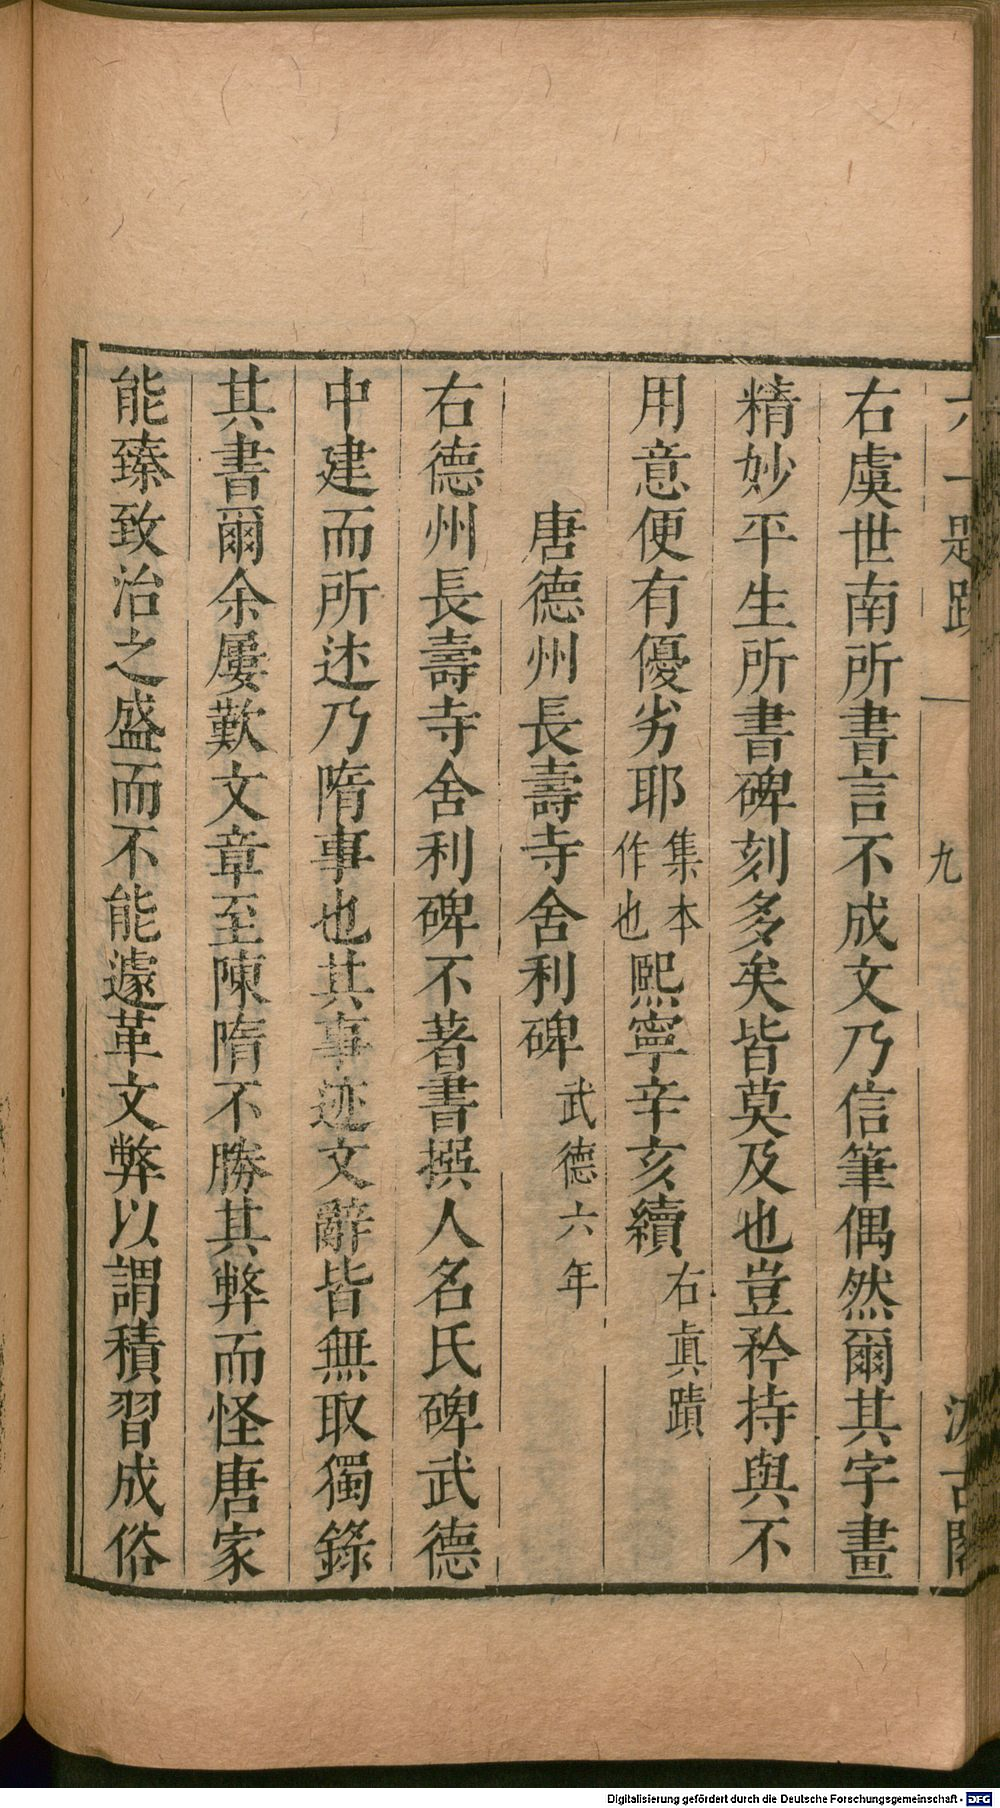 六一題跋 九 汲古閣
右虞世南所書言不成文乃信筆偶然爾其字畫
精妙平生所書碑刻多矣皆莫及也豈矜持與不
用意便有優劣耶集本作也熙寧辛亥續右眞蹟
唐德州長壽寺舍利碑武德六年
右德州長壽寺舍利碑不著書撰人名氏碑武德
中建而所述乃隋事也其事迹文辭皆無取獨錄
其書爾余屢歎文章至陳隋不勝其弊而怪唐家
能臻致治之盛而不能遽革文弊以謂積習成俗
Digitalisierung gefördert durch die Deutsche Forschungsgemeinschaft - DFG